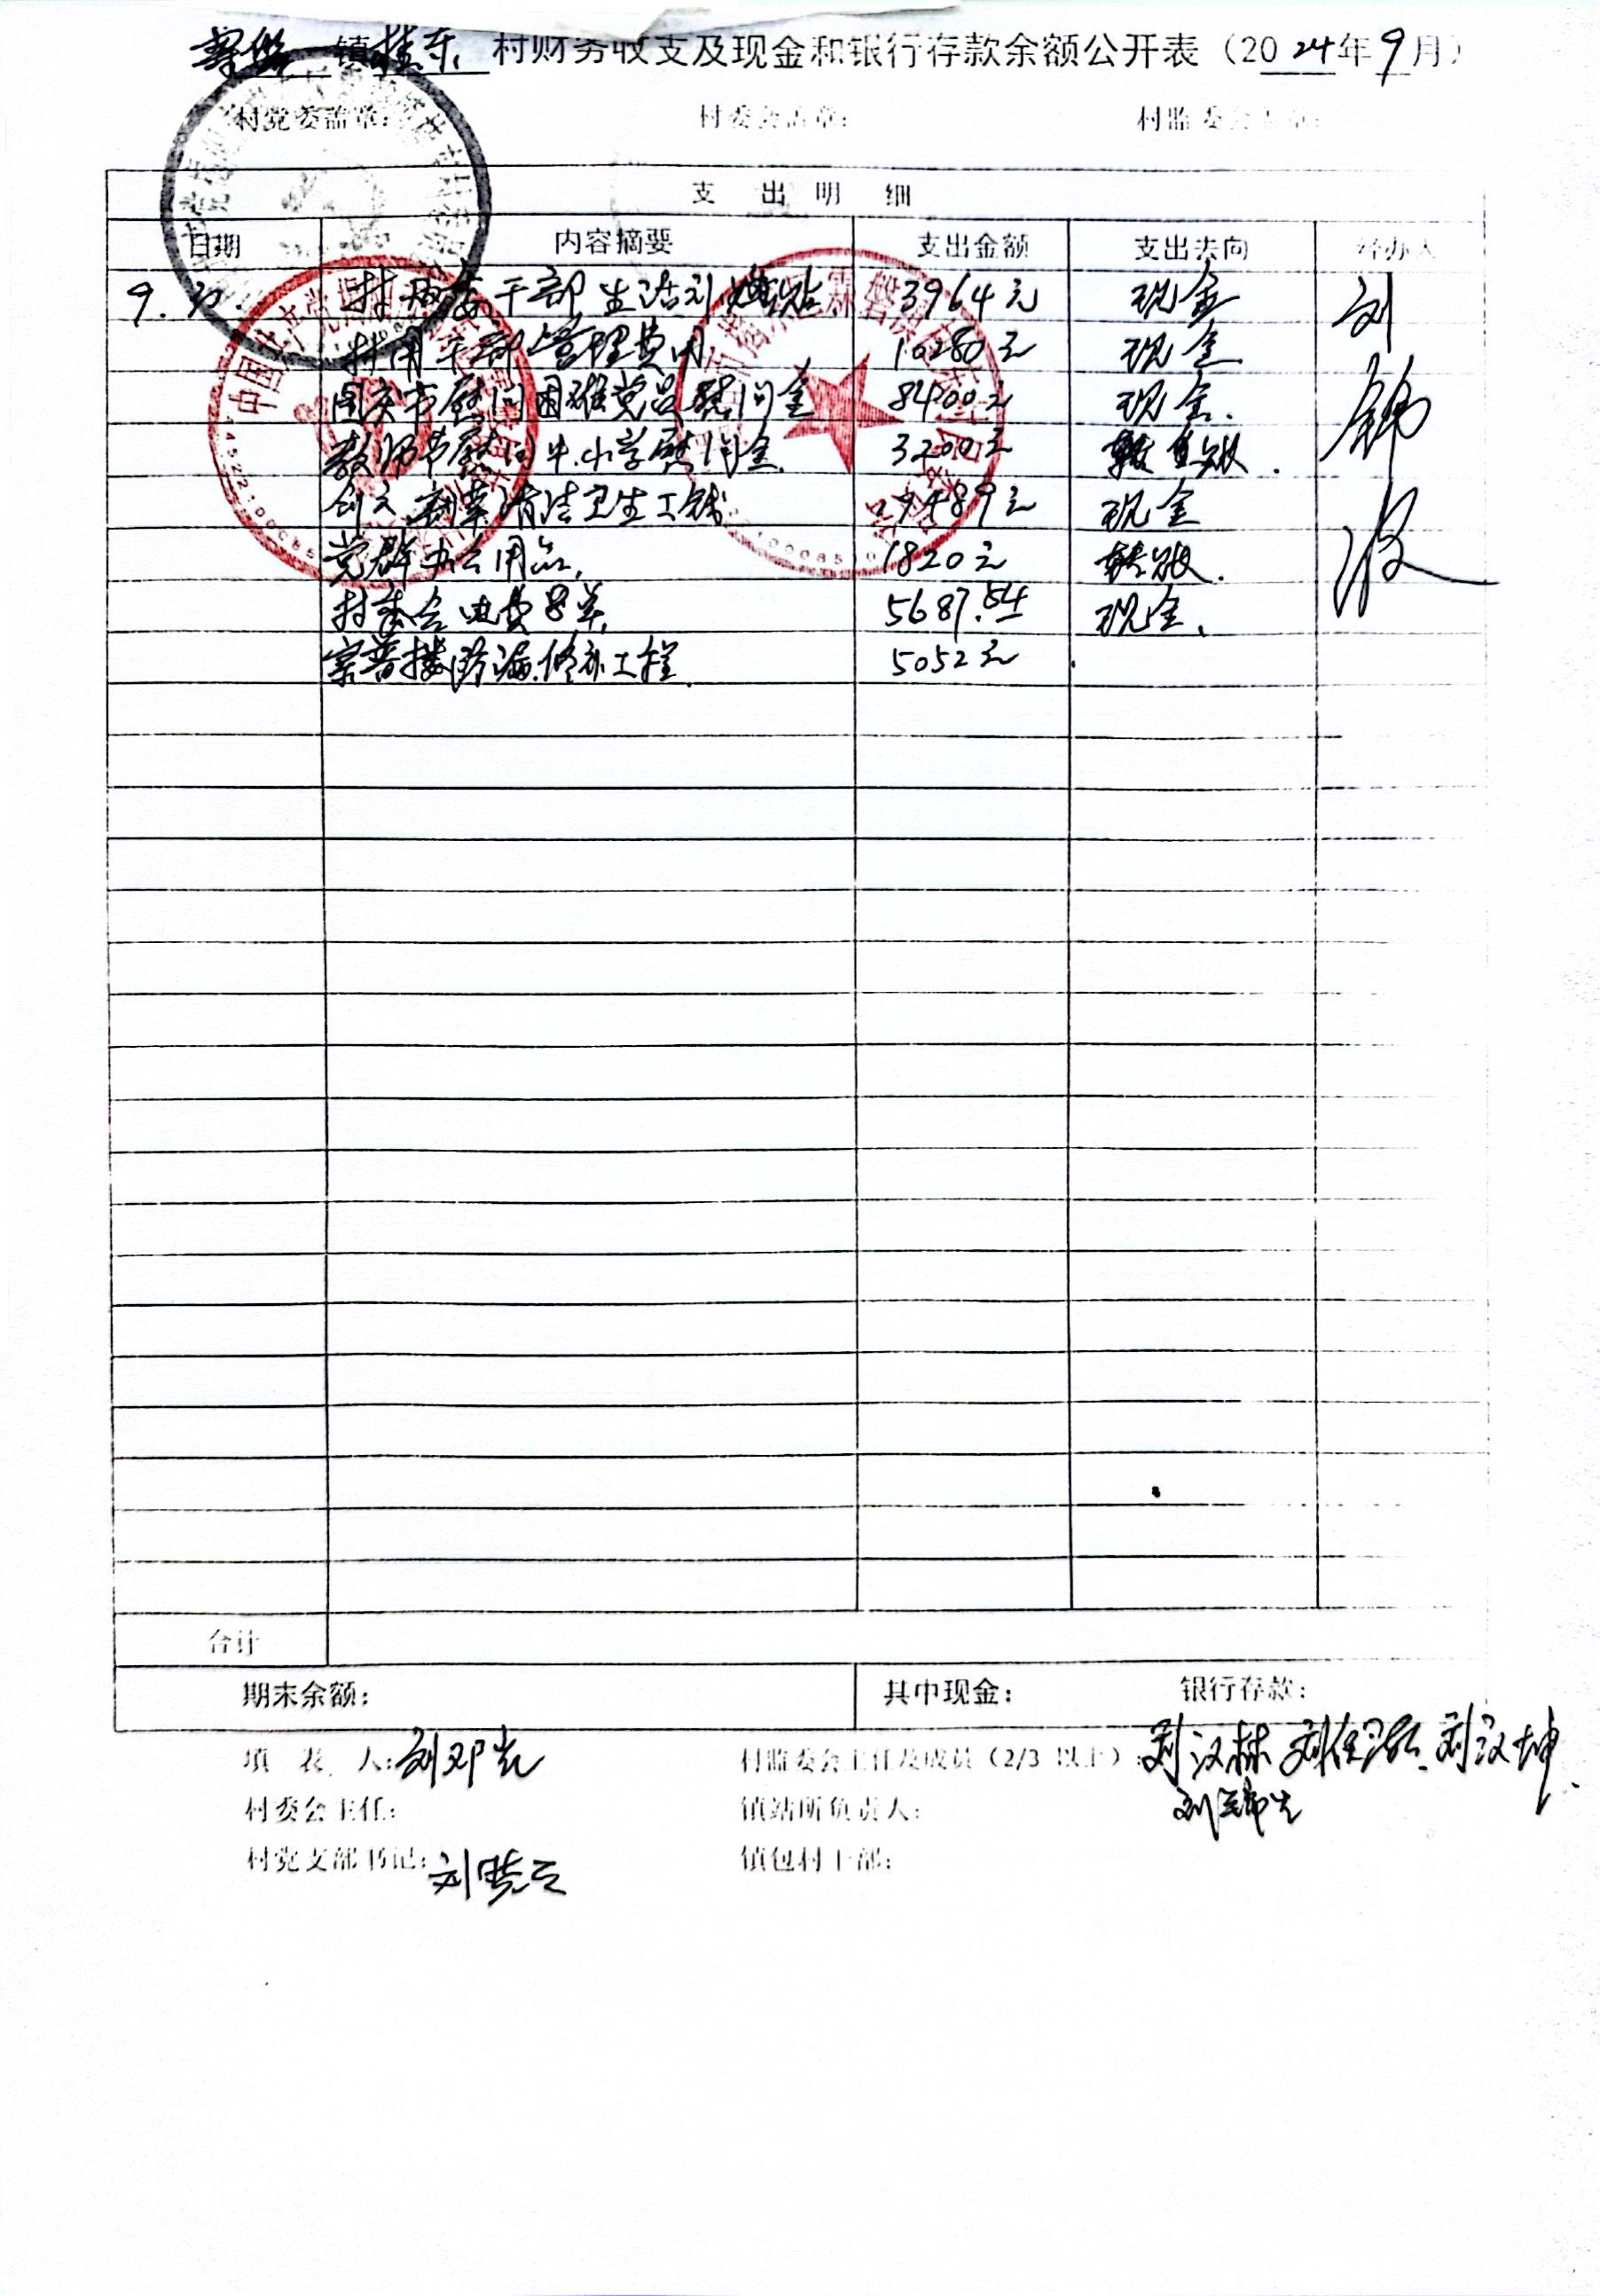 霖磐镇桂东村财务收支及现金和银行存款余额公开表（2024年9月）
村党委盖章： 村委会盖章： 村监委会盖章：
支 出 明 细
日期 内容摘要 支出金额 支出去向 经办人
9.30. 村两委干部生活补贴 3964元 现金 刘
村用干部管理费用 10280元 现金
国庆节慰问困难党员慰问金 8400元 现金.
教师节慰问中.小学慰问金. 3200元 转账.
创文 割草清洁卫生工钱 29489元 现金
党群办公用品. 1820元 转账.
村委会电费8单. 5687.54 现金.
防漏.修补工程. 5052元
合计
期末余额： 其中现金： 银行存款：
填 表 人：刘邓光 村监委会主任及成员（2/3 以上）：刘汉林 刘汉坤
村委会主任： 镇站所负责人：
村党支部书记： 镇包村干部：